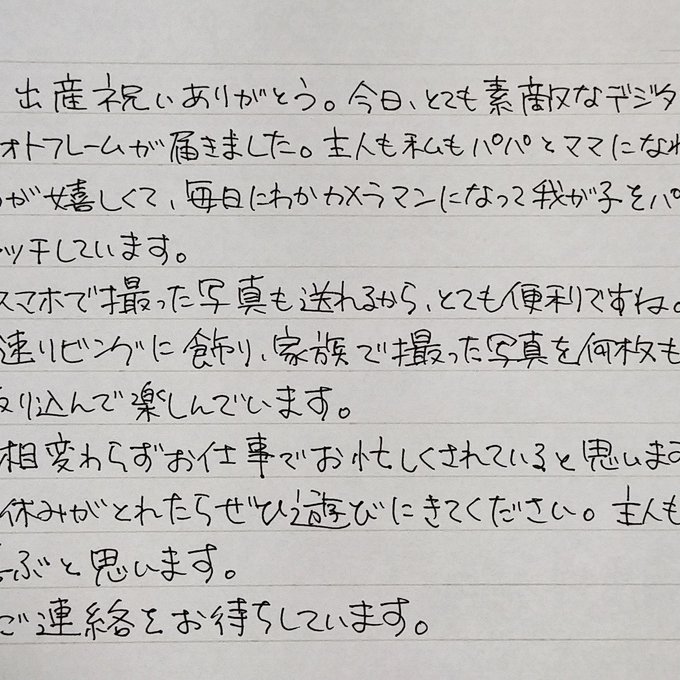 出産祝いありがとう。今日、とても素敵なデジタ
ォトフレームが届きました。主人も私もパパとママになれ
が嬉しくて、毎日にわかカメラマンになって我が子をパ
ャッチしています。
スマホで撮った写真も送れるから、とても便利ですね。
速リビングに飾り、家族で撮った写真を何枚も
取り込んで楽しんでいます。
相変わらずお仕事でお忙しくされていると思います
休みがとれたらぜひ遊びにきてください。主人も
喜ぶと思います。
ご連絡をお待ちしています。